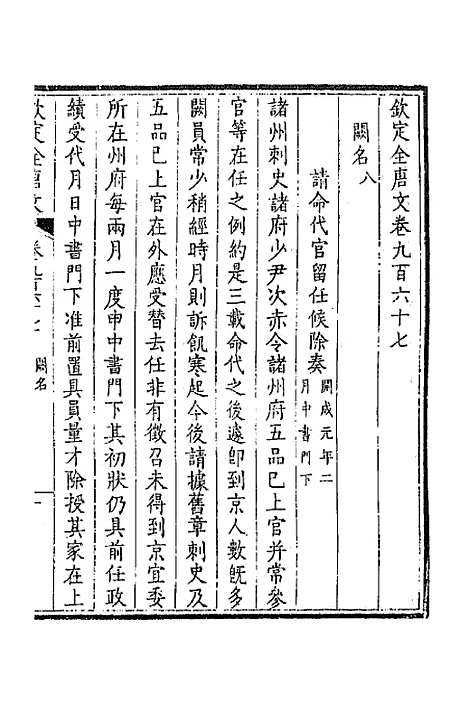 欽定全唐文卷九百六十七
闕名八
請命代官留任候除奏
開成元年二
月中書門下
諸州刺史諸府少尹次赤令諸州府五品已上官并常參
官等在任之例約是三載命代之後遽卽到京人數旣多
闕員常少稍經時月則訴飢寒起今後請據舊章刺史及
五品已上官在外應受替去任非有徵召未得到京宜委
所在州府每兩月一度申中書門下其初狀仍具前任政
績受代月日中書門下准前置具員量才除授其家在上
欽定全唐文
卷九百六十七
闕名
一